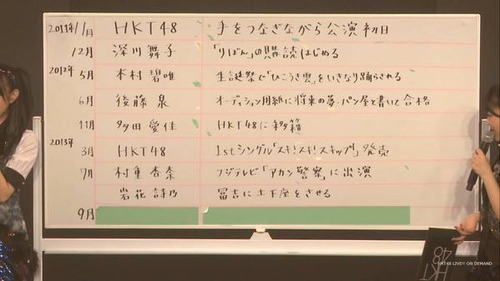 2011年11月 HKT48 手をつなぎながら公演初日
12月 深川舞子 「りぼん」の購読はじめる
2012年 5月 本村碧唯 生誕祭で「ひこうき雲」をいきなり踊らされる
6月 後藤泉 オーディション用紙に将来の夢・パン屋と書いて合格
11月 多田愛佳 HKT48に移籍
2013年 3月 HKT48 1stシングル「スキ!スキ!スキップ!」発売
7月 村重杏奈 フジテレビ「アカン警察」に出演
岩花詩乃 冨吉に土下座をさせる
9月
HKT48
HKT48 LIVE!! ON DEMAND